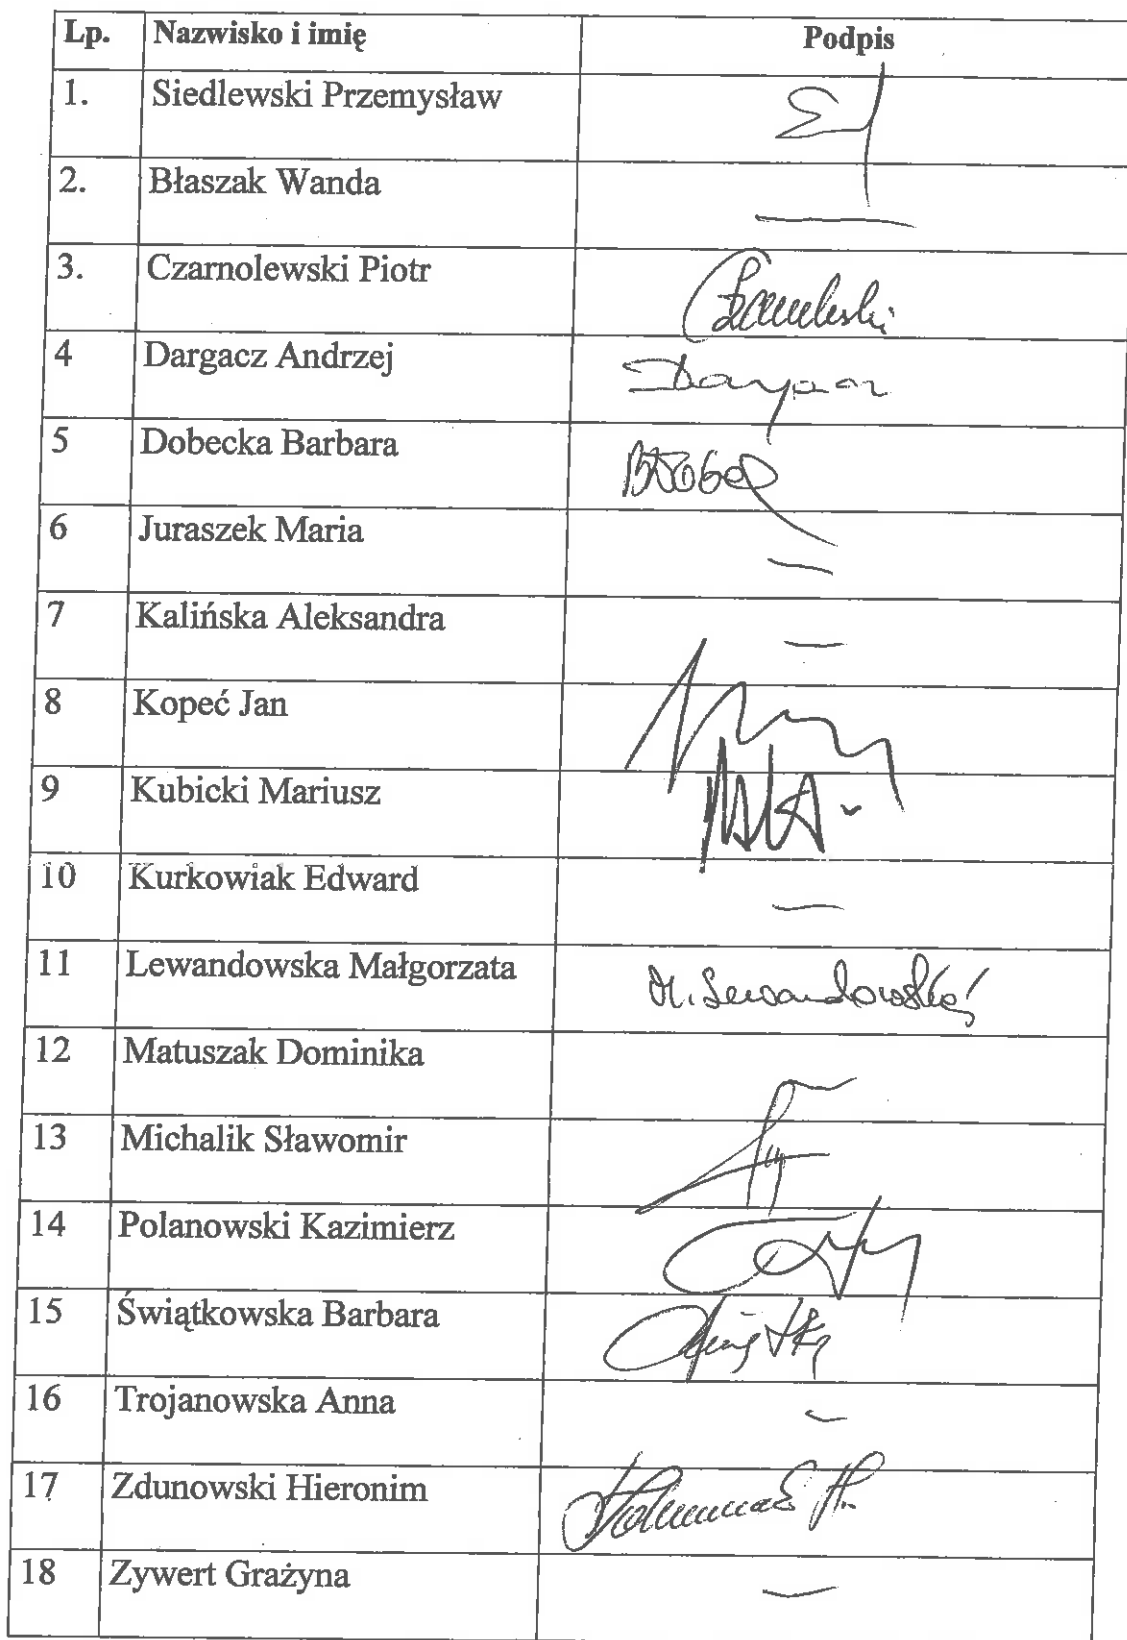 Lp. Nazwisko i imię Podpis
1. Siedlewski Przemysław
2. Błaszak Wanda
3. Czarnolewski Piotr
4 Dargacz Andrzej
5 Dobecka Barbara
6 Juraszek Maria
7 Kalińska Aleksandra
8 Kopeć Jan
9 Kubicki Mariusz
10 Kurkowiak Edward
11 Lewandowska Małgorzata M. Lewandowska
12 Matuszak Dominika
13 Michalik Sławomir
14 Polanowski Kazimierz
15 Świątkowska Barbara
16 Trojanowska Anna
17 Zdunowski Hieronim
18 Zywert Grażyna